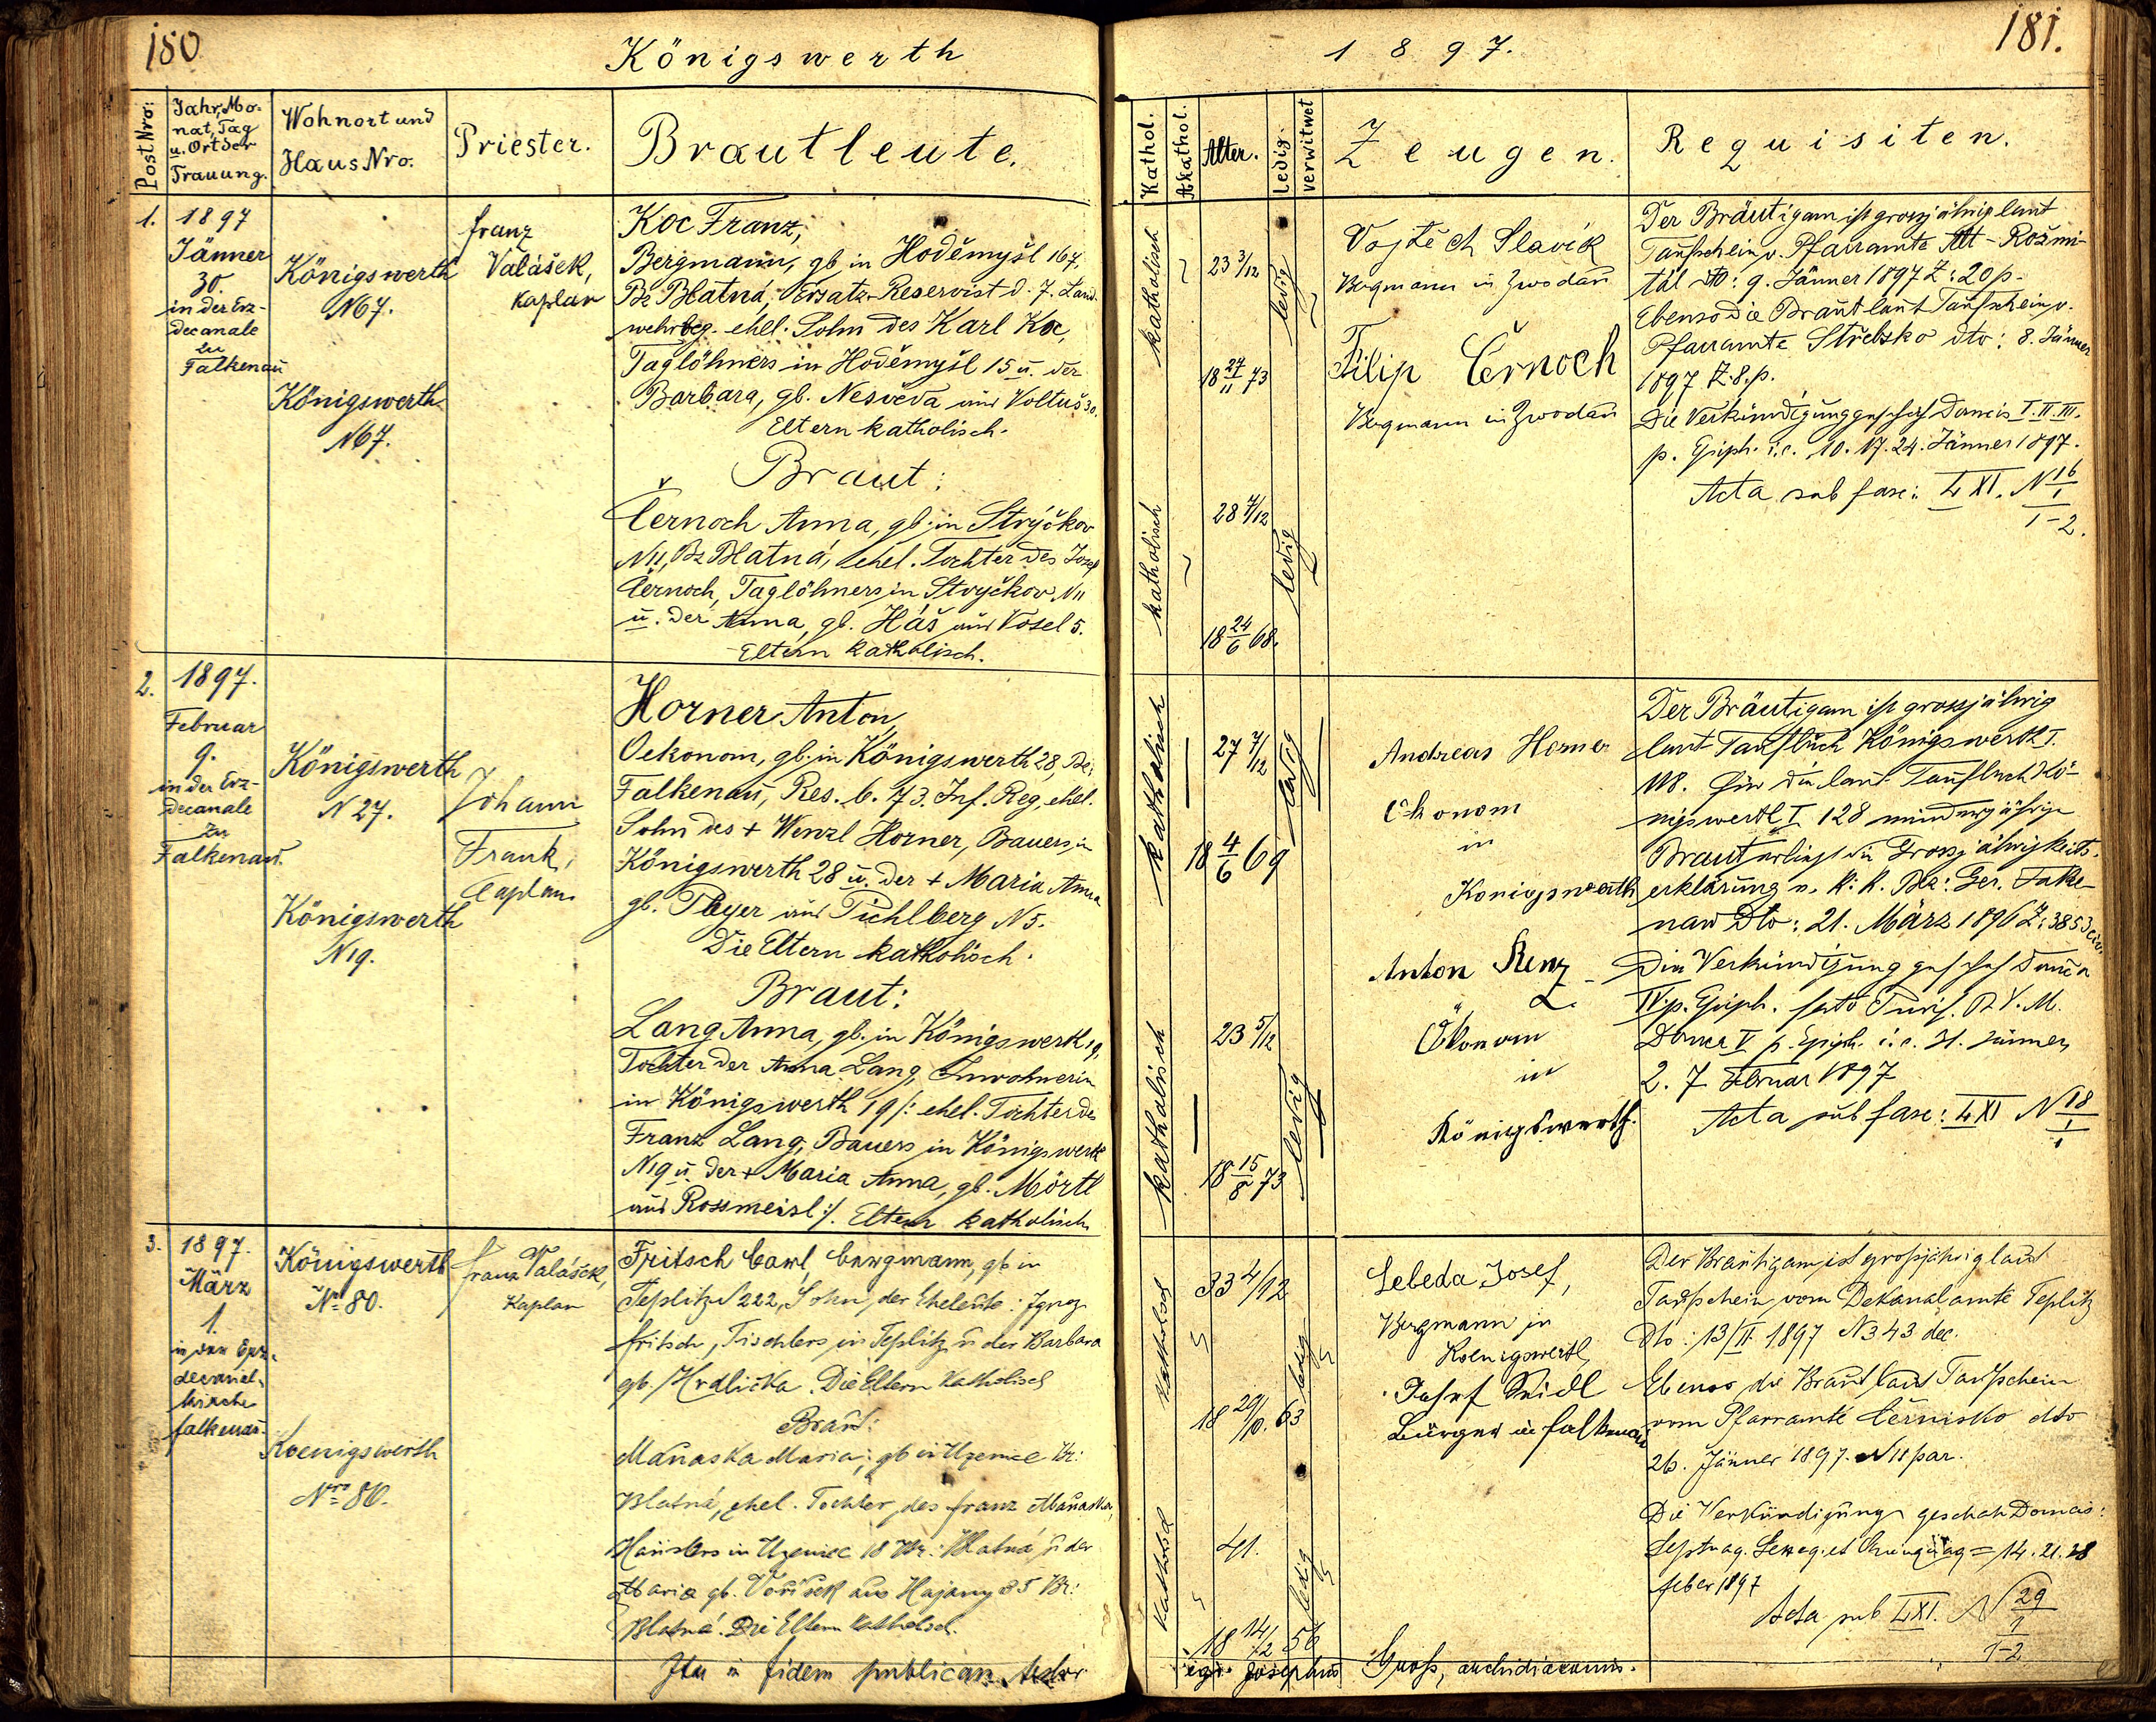 180
Königswerth
Post Nro:
Jahr, Mo-
nat, Tag
u. Ort der
Trauung.
Wohnort und
Haus Nro.
Priester.
Brautleute.
1.
1897
Jänner
30.
in der Erz-
decanale
zu
Falkenau
Königswerth
N67.
Königswerth
N67.
Franz
Valášek,
Kaplan
Koc Franz,
Bergmann, gb. in Hoděmyšl 167,
Bz Blatná, Ersatz-Reservist d. 7. Land-
wehrreg. ehel. Sohn des Karl Koc,
Taglöhners in Hoděmyšl 15 u. der
Barbara, gb. Nesvěda aus Voltuš 30.
Eltern katholisch.
Braut:
Černoch Anna, gb. in Strýčkov
N11, Bz Blatná, ehel. Tochter des Josef
Černoch, Taglöhners in Stryčkov N11
u. der Anna, gb. Háš aus Vosel 5.
Eltern katholisch.
2.
1897.
Februar
9.
in der Erz-
decanale
zu
Falkenau.
Königswerth
N 27.
Königswerth
N19.
Johann
Frank,
Caplan
Horner Anton,
Oekonom, gb. in Königswerth 28, Bz:
Falkenau, Res. b. 73. Inf. Reg, ehel.
Sohn des + Wenzl Horner, Bauers, in
Königswerth 28 u. der + Maria Anna
gb. Player aus Pichlberg N5.
Die Eltern katholisch.
Braut:
Lang Anna, gb. in Königswerth 19,
Tochter der Anna Lang, Inwohnerin
in Königswerth 19/: ehel. Tochter des
Franz Lang, Bauers in Königswerth
N19 u. der + Maria Anna, gb. Mörtl
aus Rossmeisl:/. Eltern katholisch
3.
1897.
März
1.
in der Erz-
decanal-
kirche
Falkenau.
Königswerth
No 80.
Koenigswerth
Nro 80.
Franz Valášek,
Kaplan
Fritsch Carl, Bergmann, gb in
Teplitz N 222, Sohn der Eheleute: Ignaz
Fritsch, Tischlers in Teplitz u der Barbara
gb. Hrdlička. Die Eltern katholisch
Braut:
Maňaska Maria, gb in Uzenice Bz:
Blatná, ehel. Tochter des Franz Maňaska,
Häuslers in Uzenice 18 Bz: Blatná u der
Maria gb. Voříšek aus Hajany 25 Bz:
Blatná. Die Eltern katholisch.
Ita in fidem publicam testor
181.
1897.
Kathol.
Akathol.
Alter.
ledig.
verwitwet
Zeugen.
Requisiten.
katholisch
23 3/12
18 27/11 73
ledig
katholisch
28 7/12
18 24/6 68.
ledig
Vojtěch Slavík
Bergmann in Zwodau
Filip Černoch
Bergmann in Zwodau
Der Bräutigam ist grossjährig laut
Taufschein v. Pfarramte Alt-Rožmi-
tál dto: 9. Jänner 1897 Z: 20 p.
Ebenso die Braut laut Taufschein v.
Pfarramte Střebsko dto: 8. Jänner
1897 Z. 8. p.
Die Verkündigung geschah Domcis I. II. III.
p. Epiph. i.e. 10. 17. 24. Jänner 1897.
Acta sub fasc: LXI. N 16/1
1-2.
katholisch
27 7/12
18 4/6 69
ledig
katholisch
23 5/12
18 15/8 73
ledig
Andreas Horner
Ökonom
in
Königswerth
Anton Renz
Ökonom
in
Königswerth.
Der Bräutigam ist grossjährig
laut Taufbuch Königswerth I.
118. Für die laut Taufbuch Kö-
nigswerth I 128 minderjährige
Braut erliegt die Grossjährigkeits-
erklärung v. k: k. Bez: Ger. Falke-
nau Dto: 21. März 1896 Z: 3853 civ.
Die Verkündigung geschah Domca
IV p. Epiph. festo Purif. B. V. M.
Domca V p. Epiph. i.e. 31. Jänner,
2. 7 Februar 1897
Acta sub fasc: LXI N 18/1
1
katholisch
33 4/12
18 29/10. 63
ledig
katholisch
41.
18 14/2 56
ledig
Lebeda Josef,
Bergmann in
Koenigswerth
Josef Seidl
Bürger in Falkenau
Der Bräutigam ist großjährig laut
Taufschein vom Dekanalamte Teplitz
Dto: 13/II 1897 N 343 dec.
Ebenso die Braut laut Taufschein
vom Pfarramte Černisko dto
26. Jänner 1897. N 11 par.
Die Verkündigung geschah Domcis:
Septuag. Sexag. et Quinquag = 14. 21. 28
Feber 1897
Acta sub LXI. N 29/1
1-2
ego Josephus Gross, archidiaconus.